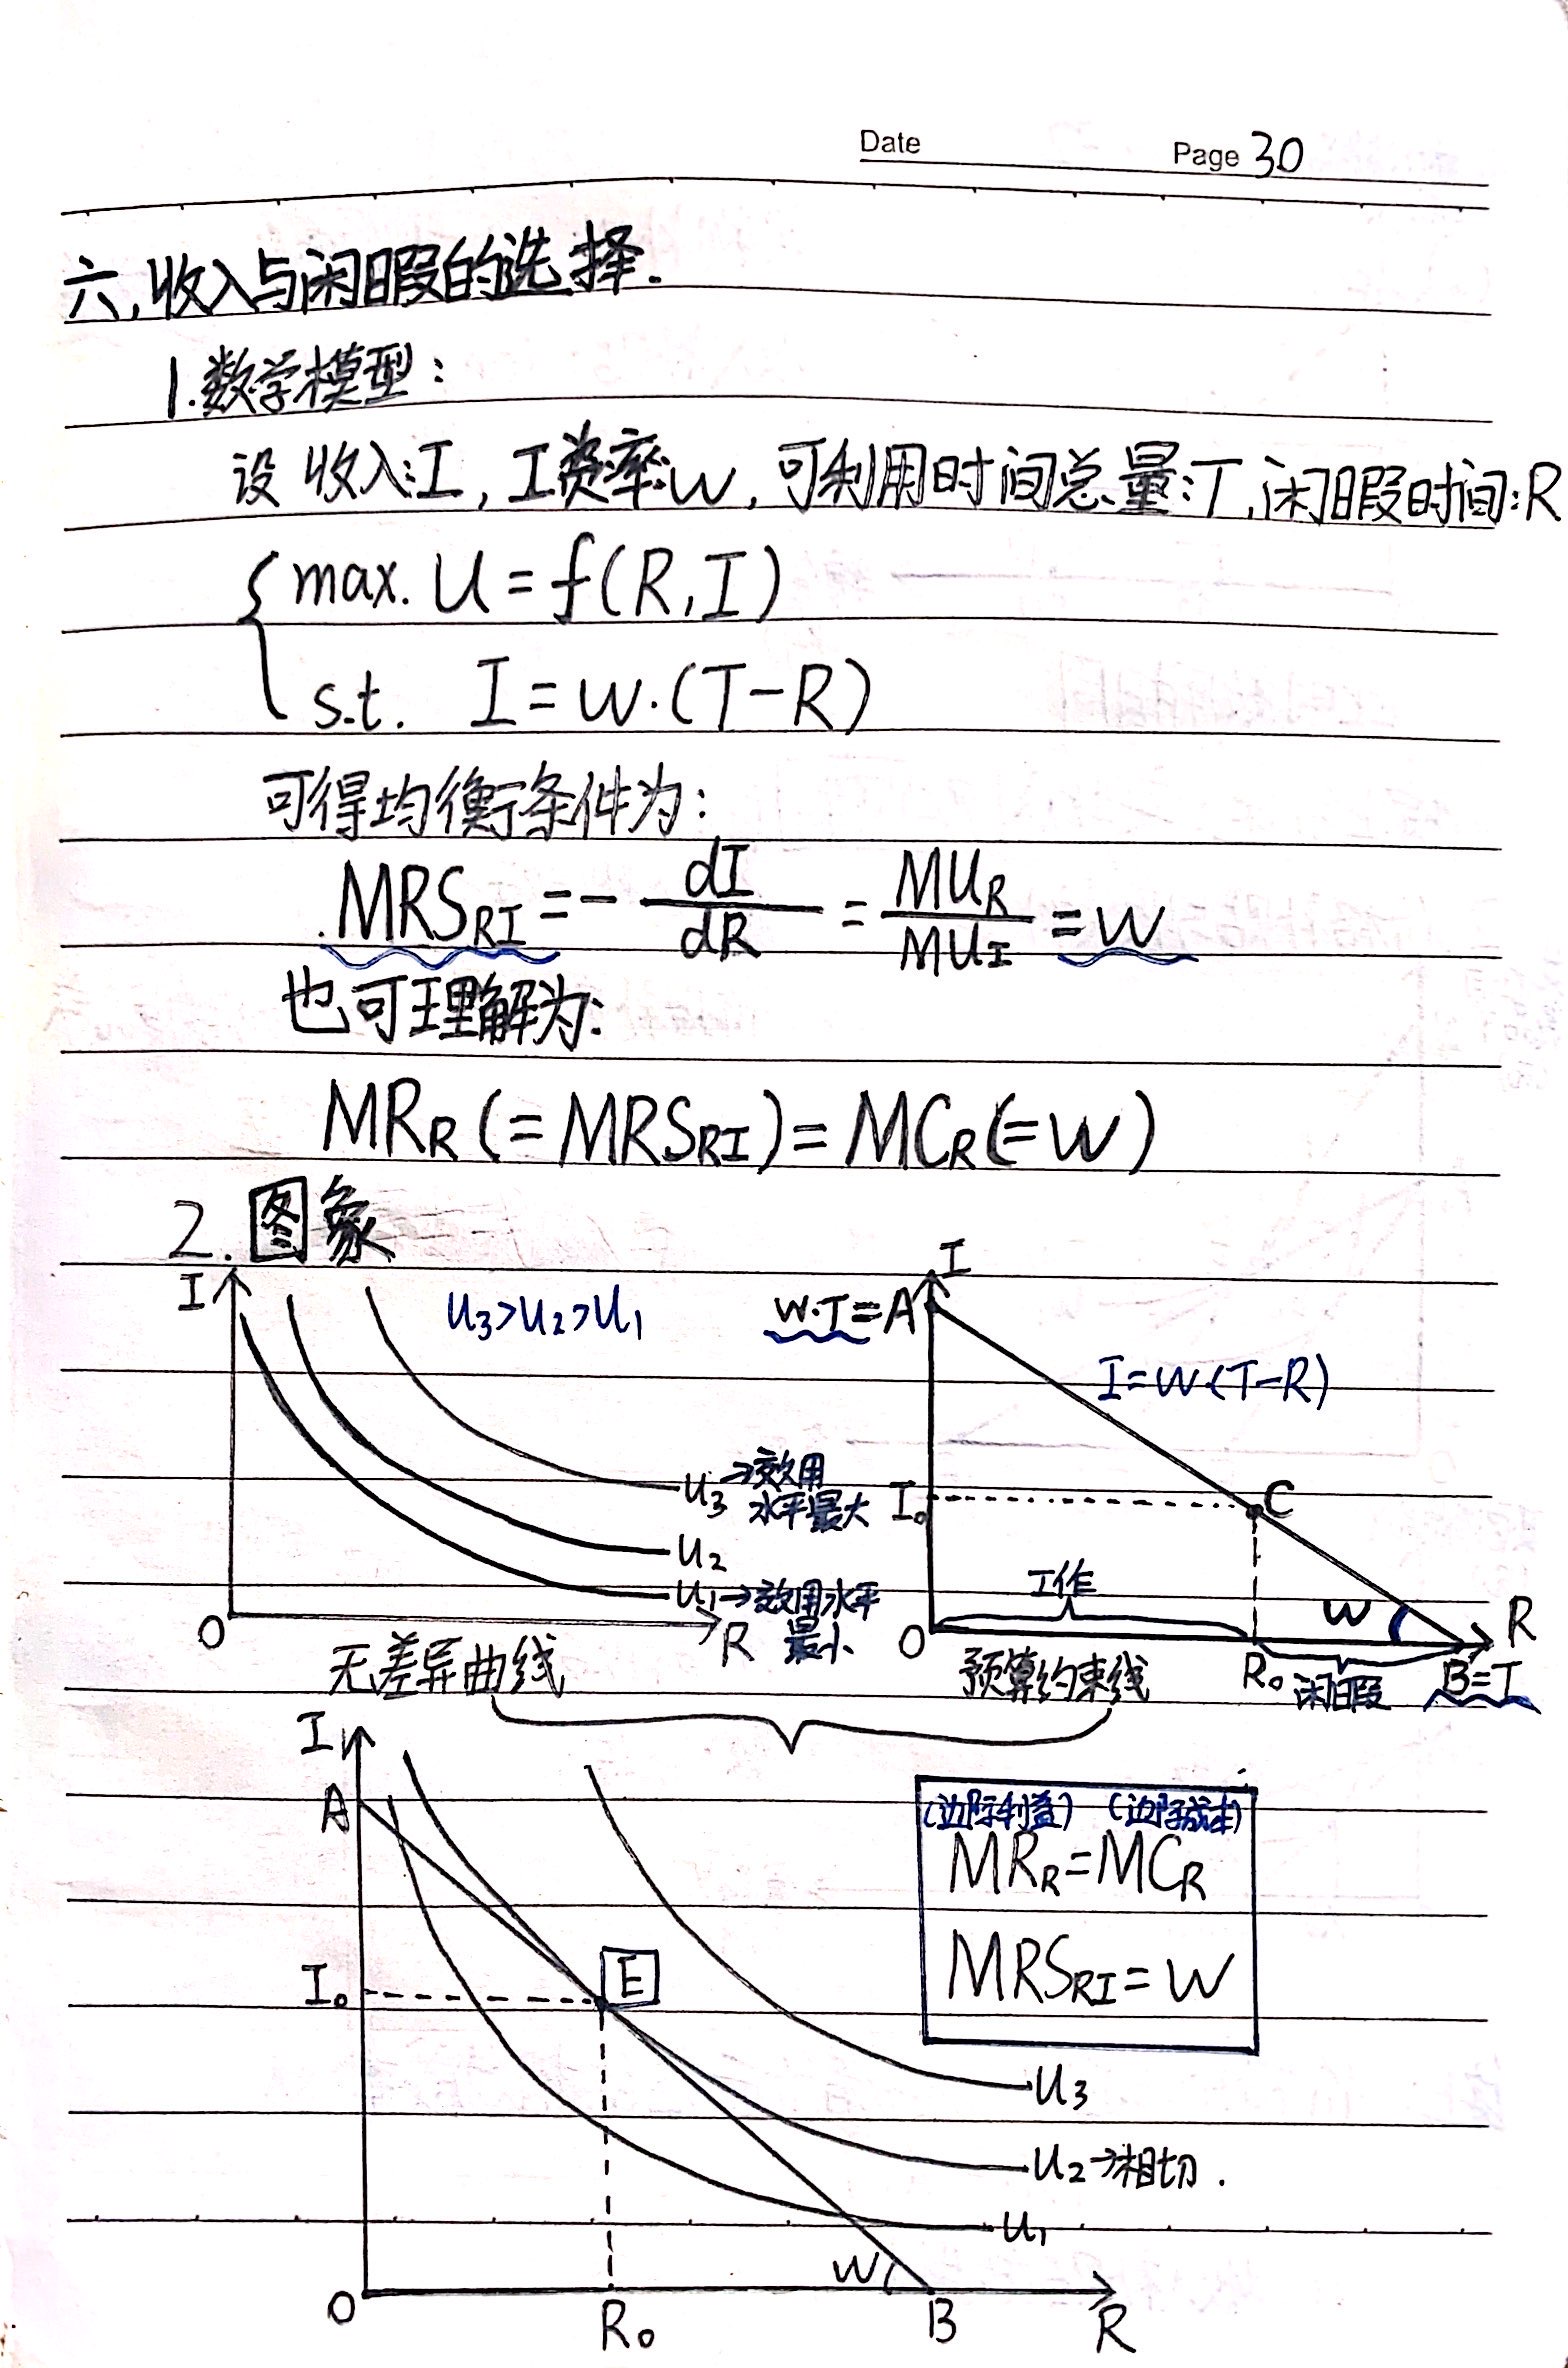 Date Page 30
六、收入与闲暇的选择.
1.数学模型:
设 收入:I, 工资率:W, 可利用时间总量:T, 闲暇时间:R
max. U=f(R,I)
s.t. I=W·(T-R)
可得均衡条件为:
MRS_RI = - dI/dR = MU_R/MU_I = W
也可理解为:
MR_R(=MRS_RI)=MC_R(=W)
2.图象
I
U₃>U₂>U₁
U₃→效用
水平最大
U₂
U₁→效用水平
最小
O
R
无差异曲线
I
W·T=A
I=W·(T-R)
I₀
C
工作
W
R
O
R₀
闲暇
B=T
预算约束线
I
A
(边际利益) (边际成本)
MR_R=MC_R
MRS_RI=W
I₀
E
U₃
U₂→相切.
U₁
W
O
R₀
B
R